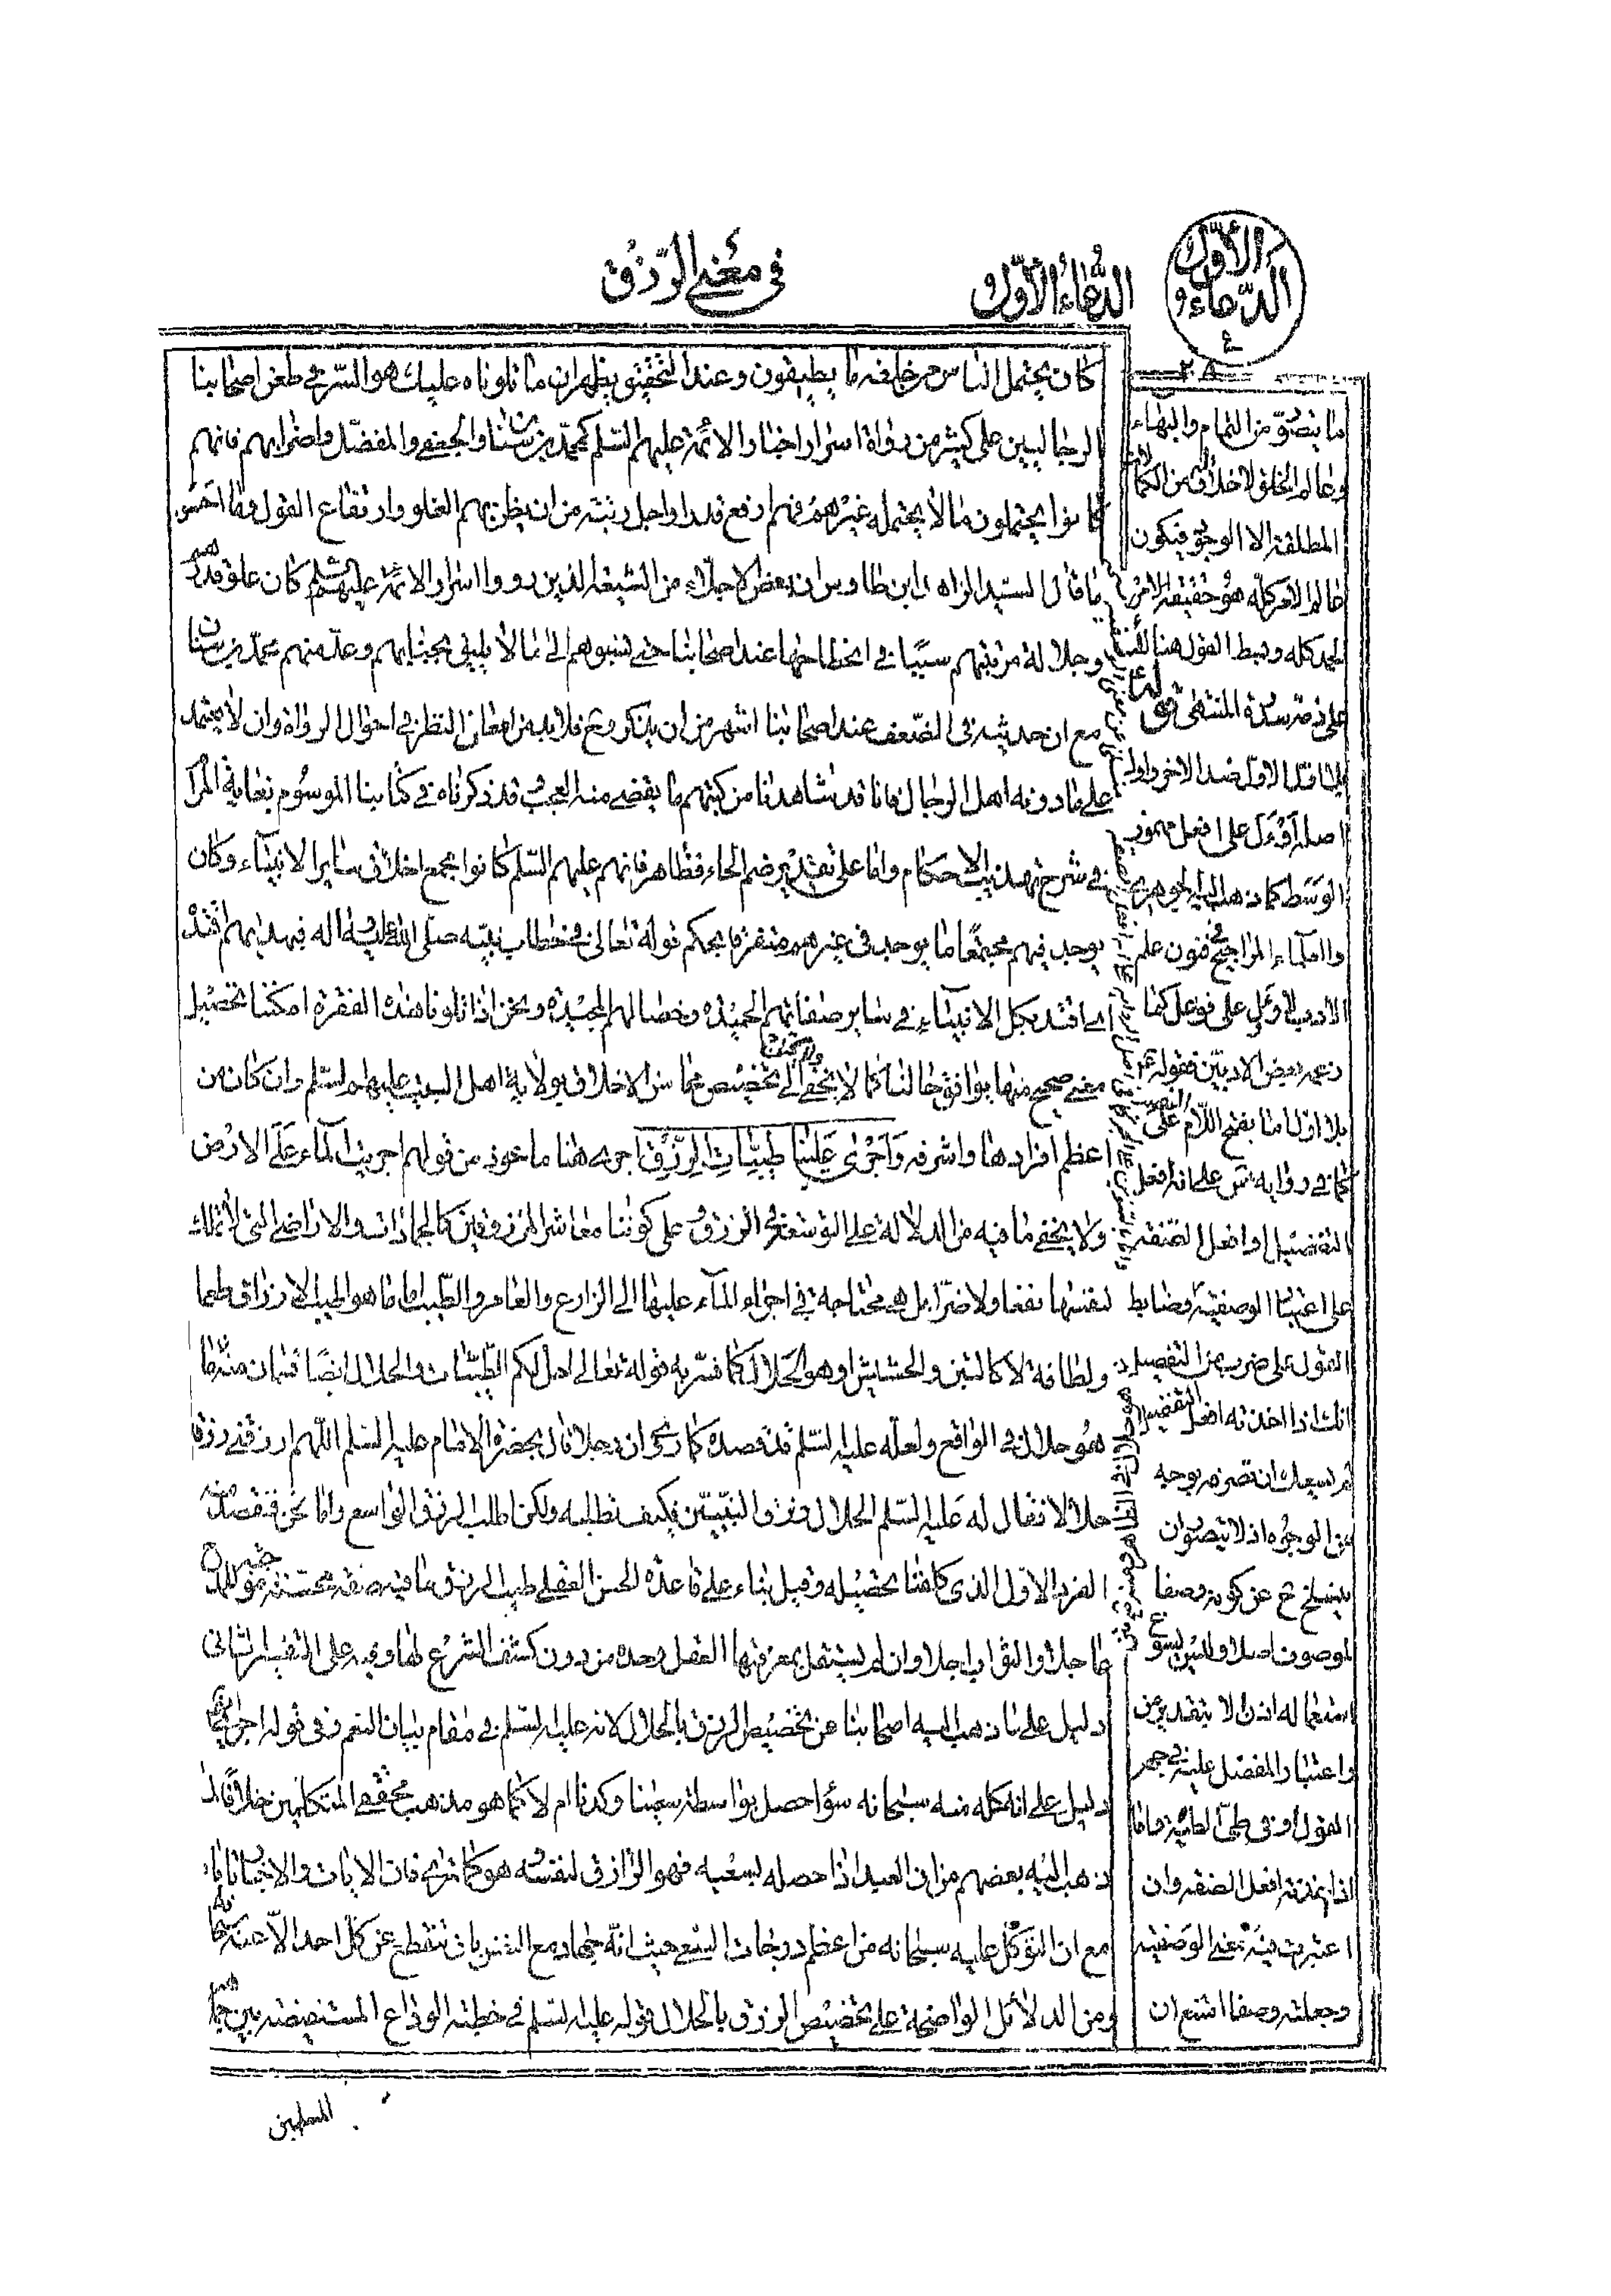 الأول
الدعاء
٤
الدعاء الأول
في معنى الرزق
٢٨
كان يحتمل الناس من خليفه ما يطيقون وعند التحقيق يظهر ان ما تلوناه عليك هو السر في طعن اصحابنا
الرجاليين على كثير من رواة اسرار اخبار الائمة عليهم السلم كمحمد بن سنان والجعفي والمفضل واضرابهم فانهم
كانوا يحتملون ما لا يحتمله غيرهم فهم ارفع قدرا واجل رتبة من ان يظن بهم الغلو وارتفاع القول وما احسن
ما قال السيد الزاهد ابن طاوس ان بعض الاجلاء من الشيعة الذين رووا اسرار الائمة عليهم السلم كان علو قدرهم
وجلالة مرتبتهم سببا في انحطاطها عند اصحابنا حتى نسبوهم الى ما لا يليق بجنابهم وعد منهم محمد بن سنان
مع ان حديثه في الضعف عند اصحابنا اشهر من ان يذكر وح فلا بد من امعان النظر في احوال الرواة وان لا يعتمد
على ما دونه اهل الرجال فانا قد شاهدنا من كتبهم ما يقضى منه العجب وقد ذكرناه في كتابنا الموسوم بغاية المرام
في شرح تهذيب الاحكام واما على تقدير ضم الخاء فظاهر فانهم عليهم السلم كانوا مجمع اخلاق ساير الانبياء وكان
يوجد فيهم مجتمعا ما يوجد في غيرهم متفرقا بحكم قوله تعالى في خطاب نبيه صلى الله عليه واله فبهديهم اقتده
اي اقتد بكل الانبياء في ساير صفاتهم الحميدة وخصالهم المجيدة ونحن اذا تلونا هذه الفقرة امكننا تحصيل
معنى صحيح منها يوافق حالنا كما لا يخفى ولا يحتاج الى تخصيص محاسن الاخلاق بولاية اهل البيت عليهم السلم وان كان من
اعظم افرادها واشرفه وَاَجْرى عَلَيْنا طَيِّباتِ الرِّزْقِ اجرى هنا ماخوذ من قولهم اجريت الماء على الارض
ولا يخفى ما فيه من الدلالة على التوسعة في الرزق وعلى كوننا معاشر المرزوقين كالجمادات والاراضي التي لا تملك
لنفسها نفعا ولا ضرا بل هي محتاجة في اجراء الماء عليها الى الزارع والعامر والطيب اما ما هو اطيب الارزاق طعما
ولطافة لا كالتبن والحشيش او هو الحلال كما فسر به قوله تعالى احل لكم الطيبات والحلال ايضا قسمان منه ما
هو حلال في الواقع ولعله عليه السلم قد قصده كما روى ان رجلا قال بحضرة الامام عليه السلم اللهم ارزقني رزقا
حلالا فقال له عليه السلم الحلال رزق النبيين فكيف تطلبه ولكن اطلب الرزق الواسع واما نحن فنقصد منه
الفرد الاول الذي كلفنا بتحصيله وقيل بناء على قاعدة الحسن العقلي طيب الرزق ما فيه صفة محسنة
عاجلا والثواب اجلا وان لم يستقل بمعرفتها العقل وحده من دون كشف الشرع لها وفيه على التفسير الثاني
دليل على ما ذهب اليه اصحابنا من تخصيص الرزق بالحلال لانه عليه السلم في مقام بيان النعم وفي قوله اجرى
دليل على انه كله منه سبحانه سواء حصل بواسطة سعينا وكدنا ام لا كما هو مذهب محققي المتكلمين خلافا لما
ذهب اليه بعضهم من ان العبد اذا حصله بسعيه فهو الرازق لنفسه هو كما ترى فان الايات والاخبار تاباه
مع ان التوكل عليه سبحانه من اعظم درجات السعي حيث انه جهاد مع النفس بان تنقطع عن كل احد الا عنه
ومن الدلائل الواضحة على تخصيص الرزق بالحلال قوله عليه السلم في خطبة الوداع المستفيضة بين
المسلمين
ما يتصور من التمام والبهاء
وعالم الخلق لا خلاق من الكمالات
المطلقة الا الوجود فيكون
عالم الامر كله هو حقيقة الامر
الحمد كله وبسط القول هنا لك
على ذمة سدرة المنتهى
الاول ضد الاخر واوله
اصله اوءل على افعل مهموز
الوسط كما ذهب اليه الجوهري
المراجيح في فنون علم
الادب او وول على فوعل كما
زعمه بعض الادبين فقوله
بلا اول اما بفتح اللام على
كما في رواية س على انه افعل
التفضيل او افعل الصفة
على اعتبار الوصفية وضابط
القول على ضرب من التفصيل
انك اذا اخذته افعل التفضيل
لم يسعك ان تصرفه بوجه
من الوجوه اذ لا يتصور ان
ينسلخ ح عن كونه وصفا
لموصوف اصلا وليس يسوغ
استعماله اذن الا بتقدير من
واعتبار المفضل عليه في جهر
القول او في طي الطية واما
اذا اخذته افعل الصفة وان
اعتبرت فيه معنى الوصفية
وجعلته وصفا امتنع ان